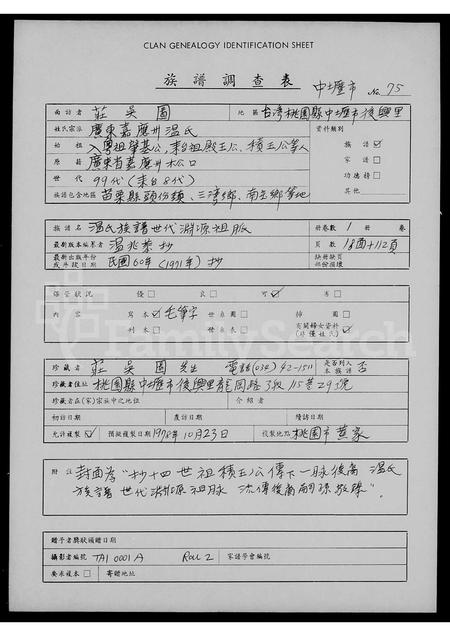 CLAN GENEALOGY IDENTIFICATION SHEET
族譜調查表 中壢市 No. 75
面訪者 莊吳圓 地區 台湾桃園縣中壢市後興里
姓氏宗派 廣東嘉應州温氏 資料類別
始祖 入粤祖肇基公,來台祖殿玉公、積玉公等人 族譜 ☑
原籍 廣東省嘉應州松口 家譜 □
世代 99代(來台8代) 功德榜 □
族譜包含地區 苗栗縣頭份鎮、三湾鄉、南庄鄉等地 其他
譜名 温氏族譜世代渊源祖脈 冊卷數 1 冊 卷
最新版本編著者 温兆荣抄 頁數 1圖+112頁
最新出版年份或手抄日期 民國60年(1971年)抄 缺冊缺頁部份損壞
保管狀況 優□ 良□ 可☑ 劣□
內容 寫本☑毛筆字 世系圖□ 插圖□
刊本□ 世系表□ 有關婦女資料(非僅姓氏)□
珍藏者 莊吳圓先生 電話(034)42-1511 是否列入本族譜 否
珍藏者住址 桃園縣中壢市後興里龍岡路3段115巷293號
珍藏者在(家)宗族中之地位 介紹者
初訪日期 覆訪日期 續訪日期
允許複製☑ 預擬複製日期 1978年10月23日 複製地點 桃園市黃家
附註 封面為"抄十四世祖積玉公傳下一脈後裔 温氏
族譜世代渊源祖脈 流傳後裔嗣孫敬錄".
贈予者獎狀頒贈日期
攝影者編號 TAI 0001 A Roll 2 家譜學會編號
要求複本□ 寄贈地址
FamilySearch